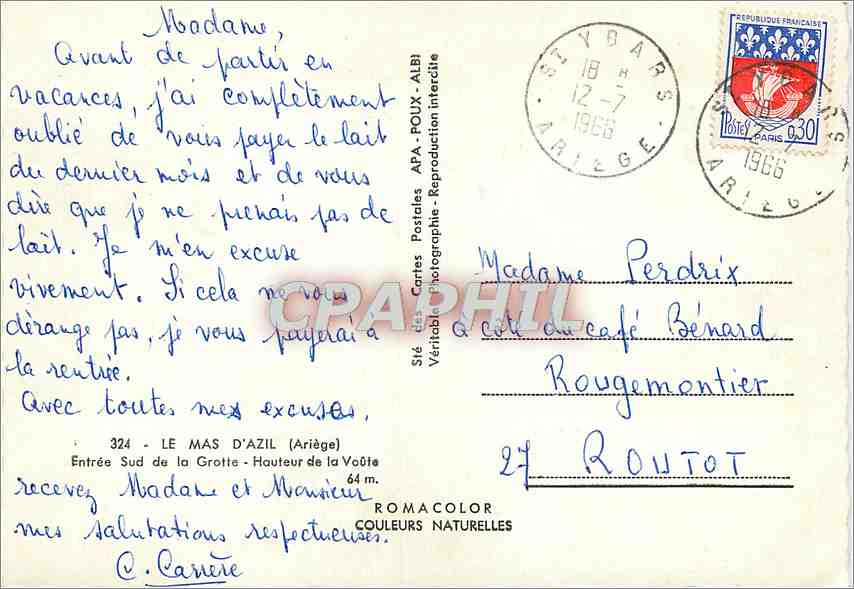 Madame,
Avant de partir en
vacances, j'ai complètement
oublié de vous payer le lait
du dernier mois et de vous
dire que je ne prenais pas de
lait. Je m'en excuse
vivement. Si cela ne vous
dérange pas, je vous payerai à
la rentrée.
Avec toutes mes excuses,
324 - LE MAS D'AZIL (Ariège)
Entrée Sud de la Grotte - Hauteur de la Voûte
64 m.
recevez Madame et Monsieur
mes salutations respectueuses.
C. Carrère
Sté des Cartes Postales APA-POUX-ALBI
Véritable Photographie - Reproduction interdite
ROMACOLOR
COULEURS NATURELLES
CPARHIL
ST YBARS
18 H
12-7
1966
ARIEGE
REPUBLIQUE FRANÇAISE
POSTES
PARIS
0,30
ST YBARS
18 H
12-7
1966
ARIEGE
Madame Perdrix
à côté du café Bénard
Rougemontier
27 ROUTOT